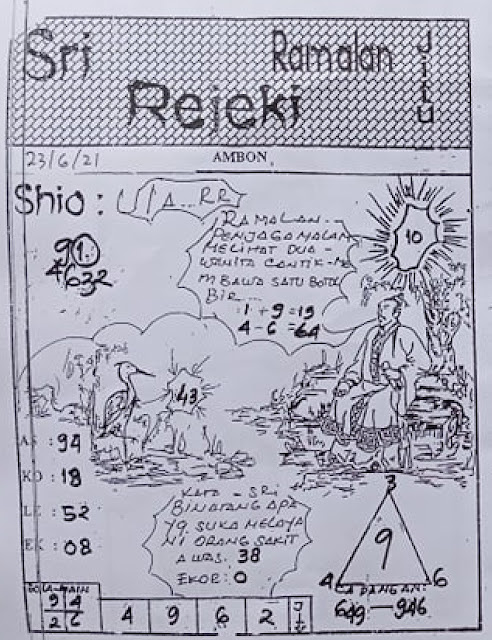 Sri
Ramalan
JITU
Rejeki
23/6/21
AMBON,
Shio :
RAMALAN
PENJAGA MALAM
MELIHAT DUA
WANITA CANTIK - ME
MBAWA SATU BOTOL
BIR
: 1 + 9 = 19
4 - 6 = 64
10
91
4632
43
AS : 94
KO : 18
LE : 52
EK : 08
KATA - SRI
BINATANG APA
YG SUKA MELAYA
NI ORANG SAKIT
AWAS. 38
EKOR : 0
3
9
4
6
CADANGAN
649 - 946
BOLA-MAIN
9 4
2 6
4 9 6 2
JITU